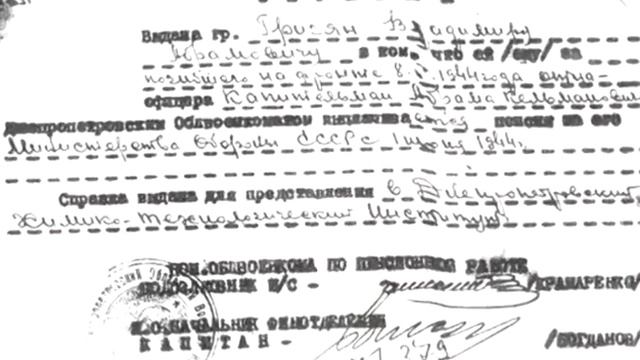 Выдана гр. Грисян Владимиру
Абрамовичу в том, что ей /ему/ за
погибшего на фронте 8. 1944 года отца-
офицера Капительман Абрама Кельмановича
Днепропетровским Облвоенкоматом пенсия на его
Министерства Обороны СССР с 1 июня 1944г.
Справка выдана для представления в Днепропетровский
Химико-технологический Институт
ПОМ.ОБЛВОЕНКОМА ПО ПЕНСИОННОЙ РАБОТЕ
ПОДПОЛКОВНИК И/С - /КРАМАРЕНКО/
И.О.НАЧАЛЬНИК ФИНОТДЕЛЕНИЯ
КАПИТАН - /БОГДАНОВ/